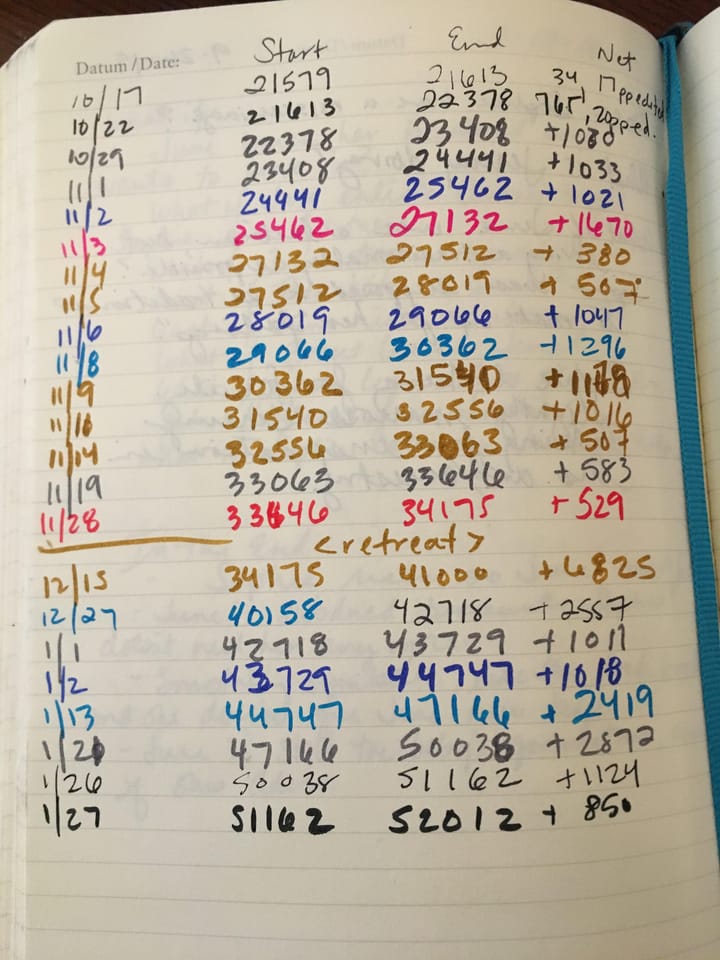 Start End Net
Datum/Date:
10/17 21579 21613 34, 17pp edited
10/22 21613 22378 765, 20pp ed.
10/29 22378 23408 +1030
11/1 23408 24441 +1033
11/2 24441 25462 + 1021
11/3 25462 27132 +1670
11/4 27132 27512 + 380
11/5 27512 28019 + 507
11/6 28019 29066 + 1047
11/8 29066 30362 +1296
11/9 30362 31540 +1178
11/10 31540 32556 +1016
11/14 32556 33063 + 507
11/19 33063 33646 + 583
11/28 33646 34175 + 529
<retreat>
12/15 34175 41000 +6825
12/27 40158 42718 +2557
1/1 42718 43729 +1011
1/2 43729 44747 +1018
1/13 44747 47166 + 2419
1/21 47166 50038 + 2872
1/26 50038 51162 +1124
1/27 51162 52012 + 850